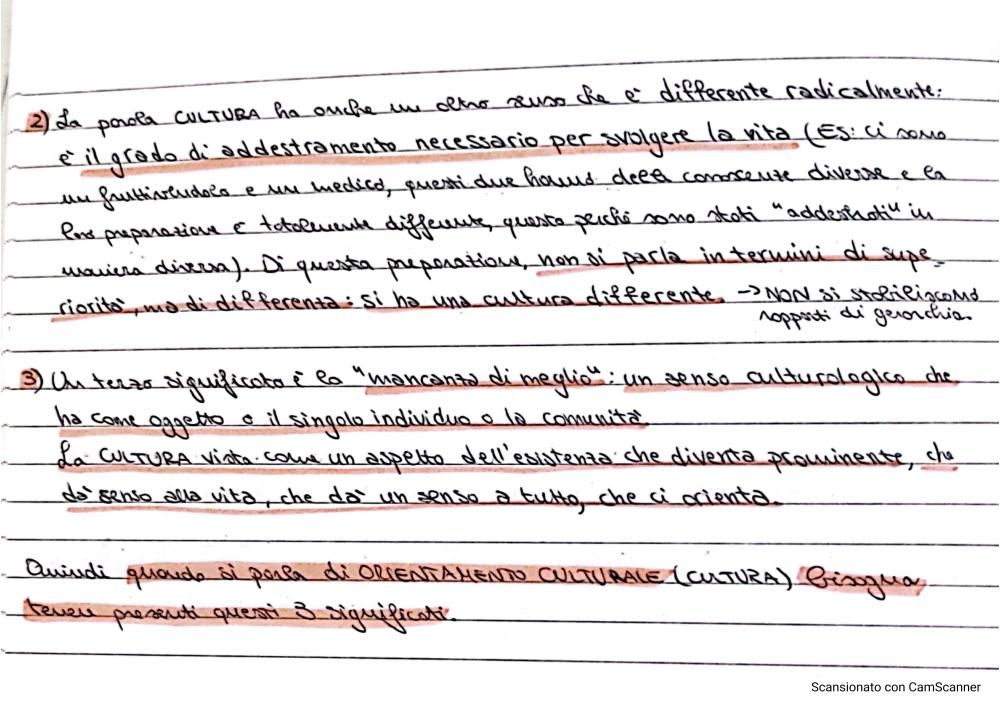 2) La parola CULTURA ha anche un altro senso che è differente radicalmente:
è il grado di addestramento necessario per svolgere la vita (Es: ci sono
un fruttivendolo e un medico, questi due hanno delle conoscenze diverse e la
loro preparazione è totalmente differente, questo perché sono stati "addestrati" in
maniera diversa). Di questa preparazione, non si parla in termini di supe_
riorità, ma di differenza: si ha una cultura differente. → NON si stabiliscono
rapporti di gerarchia.
3) Un terzo significato è la "mancanza di meglio": un senso culturologico che
ha come oggetto o il singolo individuo o la comunità.
La CULTURA vista come un aspetto dell'esistenza che diventa prominente, che
dà senso alla vita, che dà un senso a tutto, che ci orienta.
Quindi quando si parla di ORIENTAMENTO CULTURALE (CULTURA) bisogna
tenere presenti questi 3 significati.
Scansionato con CamScanner